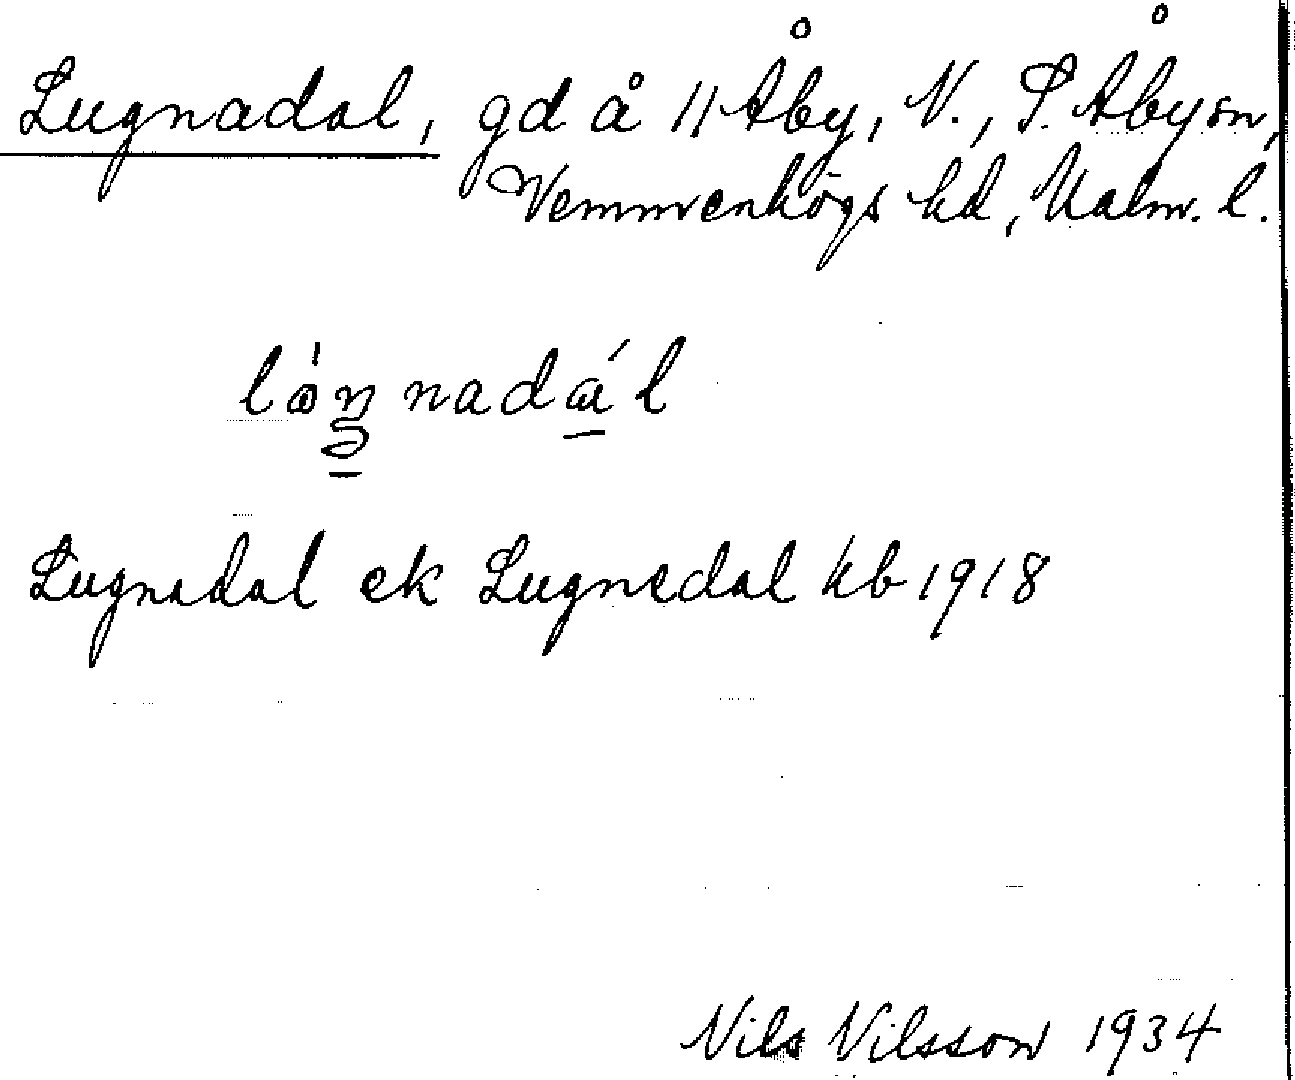 Lugnadal, gd å 11 Åby, N., S. Åby sn,
Vemmenhögs hd, Malm. l.
Lugnadal ek Lugnedal kb 1918
Nils Nilsson 1934